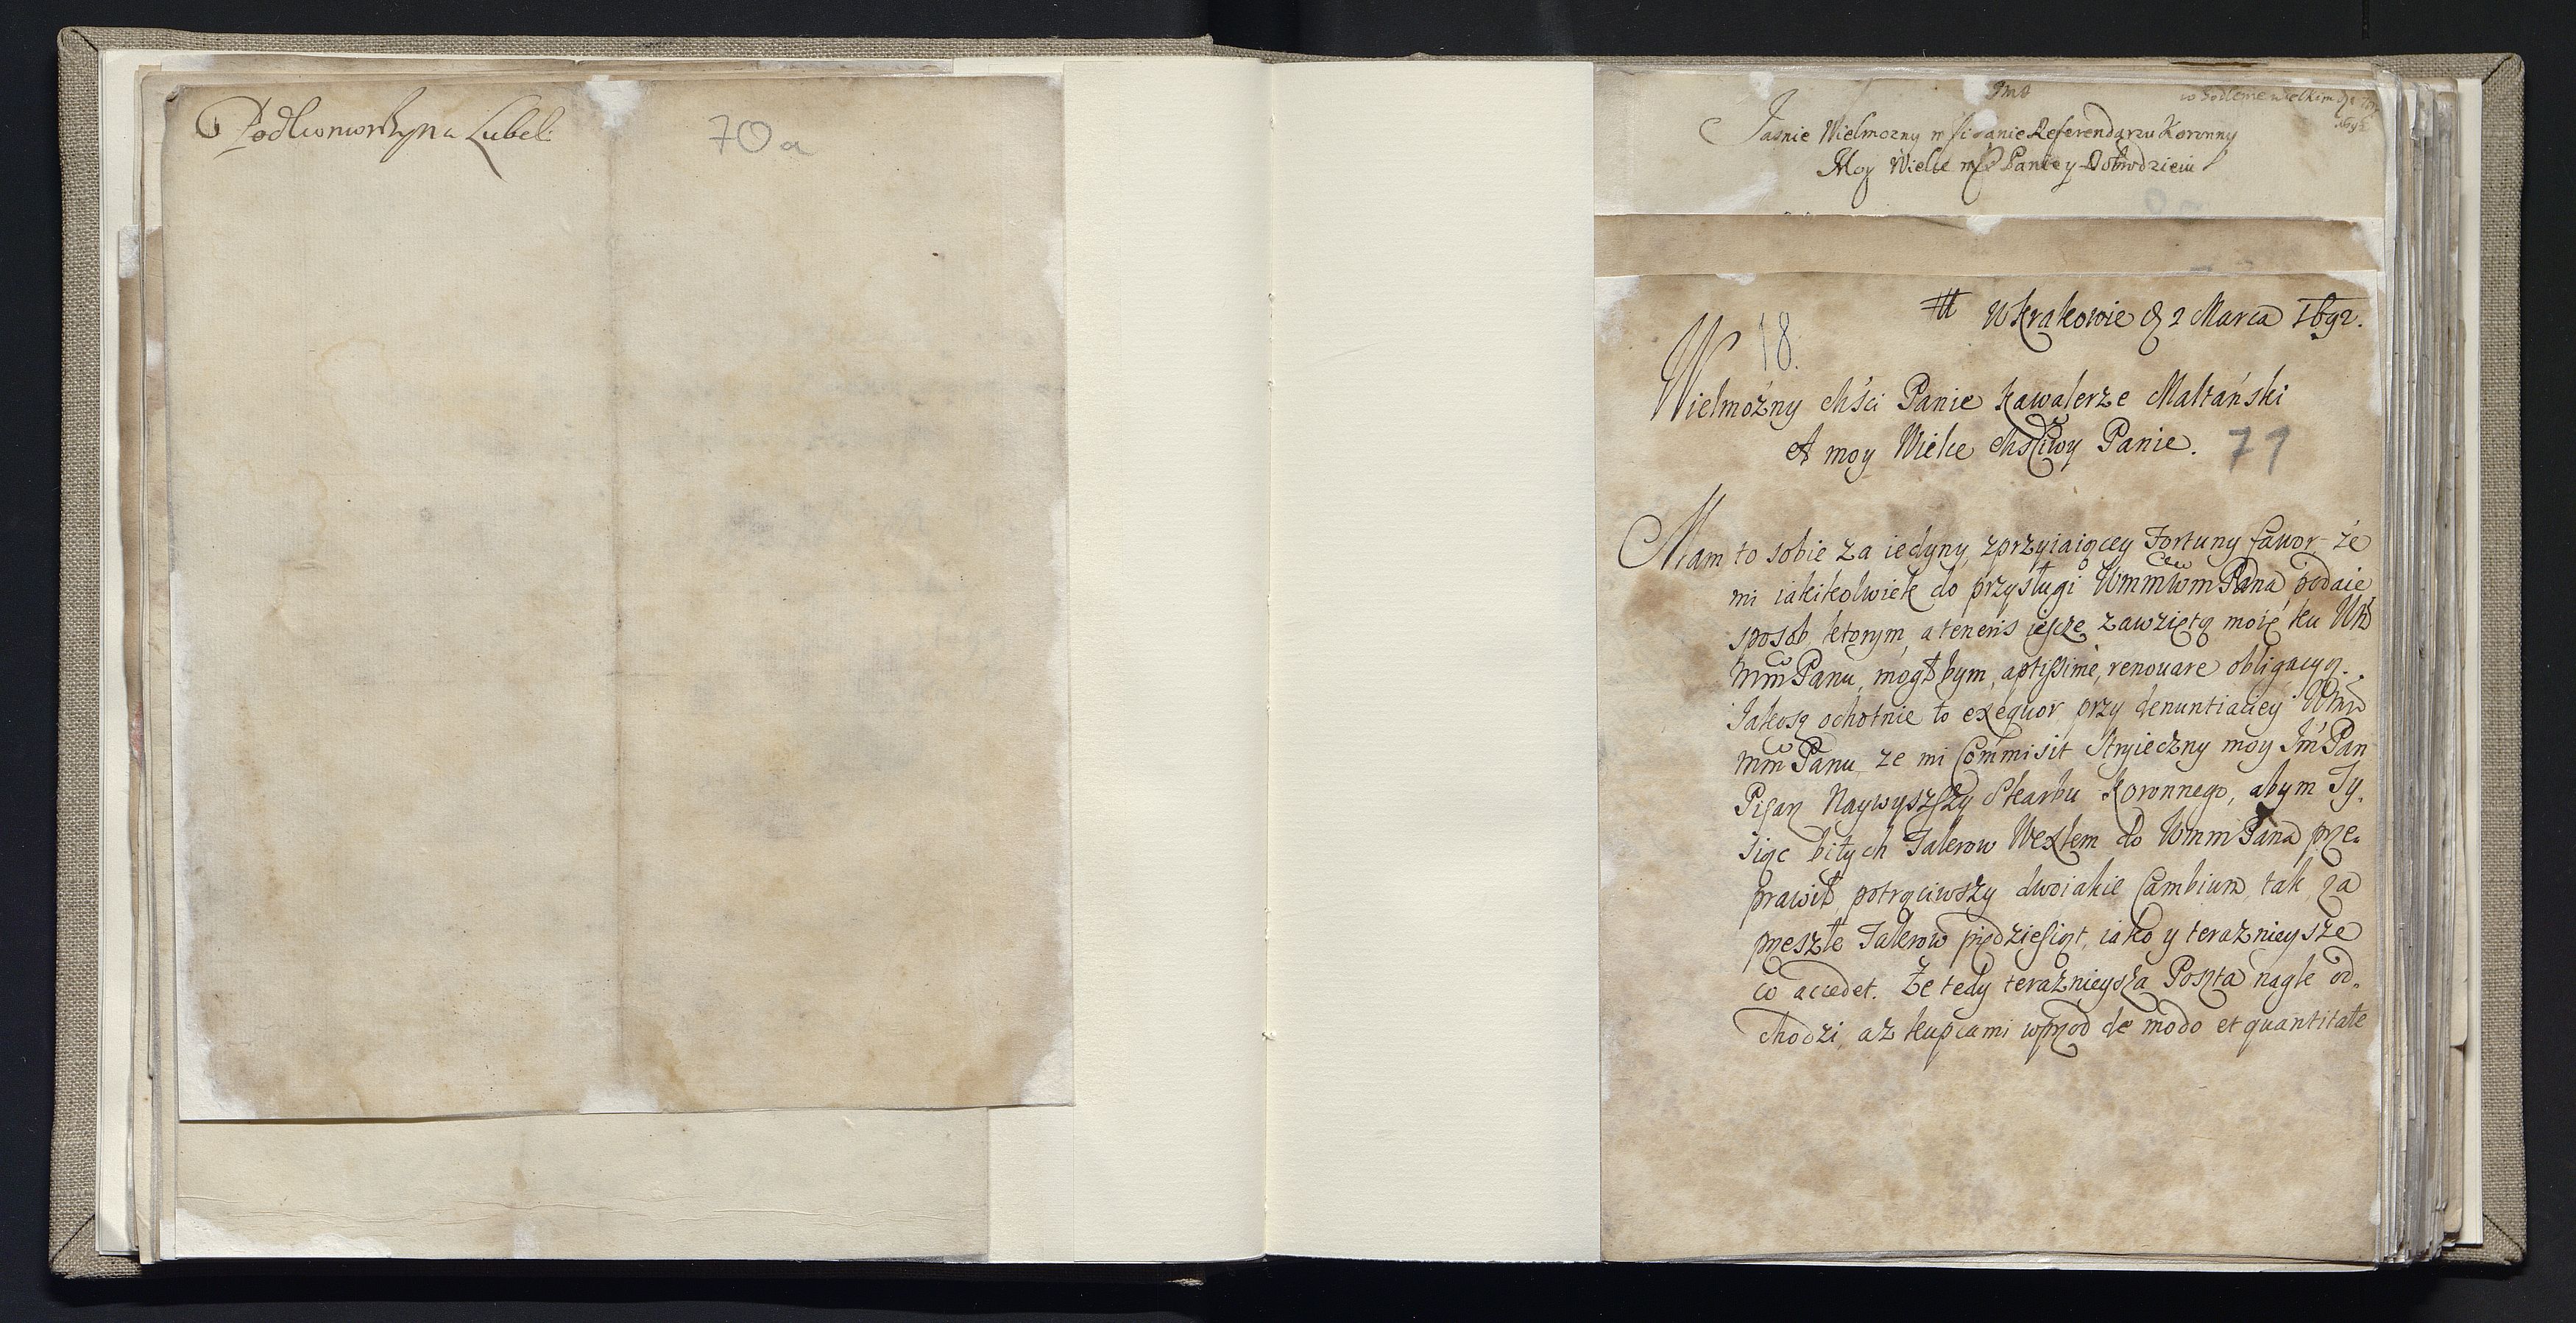 Podkomorzyna Lubel:
70a
Jmd
w Podleme wielkim
Jasnie Wielmozny mści Panie Referendarzu Koronny
Moy Wielce mść Panie y Dobrodzieiu
W Krakowie d 2 Marca 1692.
18.
Wielmożny Mści Panie Kawalerze Maltański
A moy Wielce Mściwy Panie.
71
Mam to sobie za iedyny, zprzyiaiącey Fortuny fawor, że
mi iakikolwiek do przysługi WmmWm Pana podaie
sposob, ktorym, a teneris ieszcze zawziętą moię ku Wm
Mm Panu, mogłbym, aptissime, renouare obligacyą.
Jakosz ochotnie to exequor przy denuntiaciey Wm
Mm Panu, ze mi Commisit Stryieczny moy Jm Pan
Pisarz Naywyszszy Skarbu Koronnego, abym Ty,
siąc bitych Talerow Wexlem do Wmm Pana prze,
prawił, potrąciwszy dwoiakie Cambium, tak za
przeszłe Talerow piędziesiąt, iako y teraznieysze
co accedet. Że tedy teraznieysza Poszta nagle od,
chodzi, az kupcami wprzod de modo et quantitate